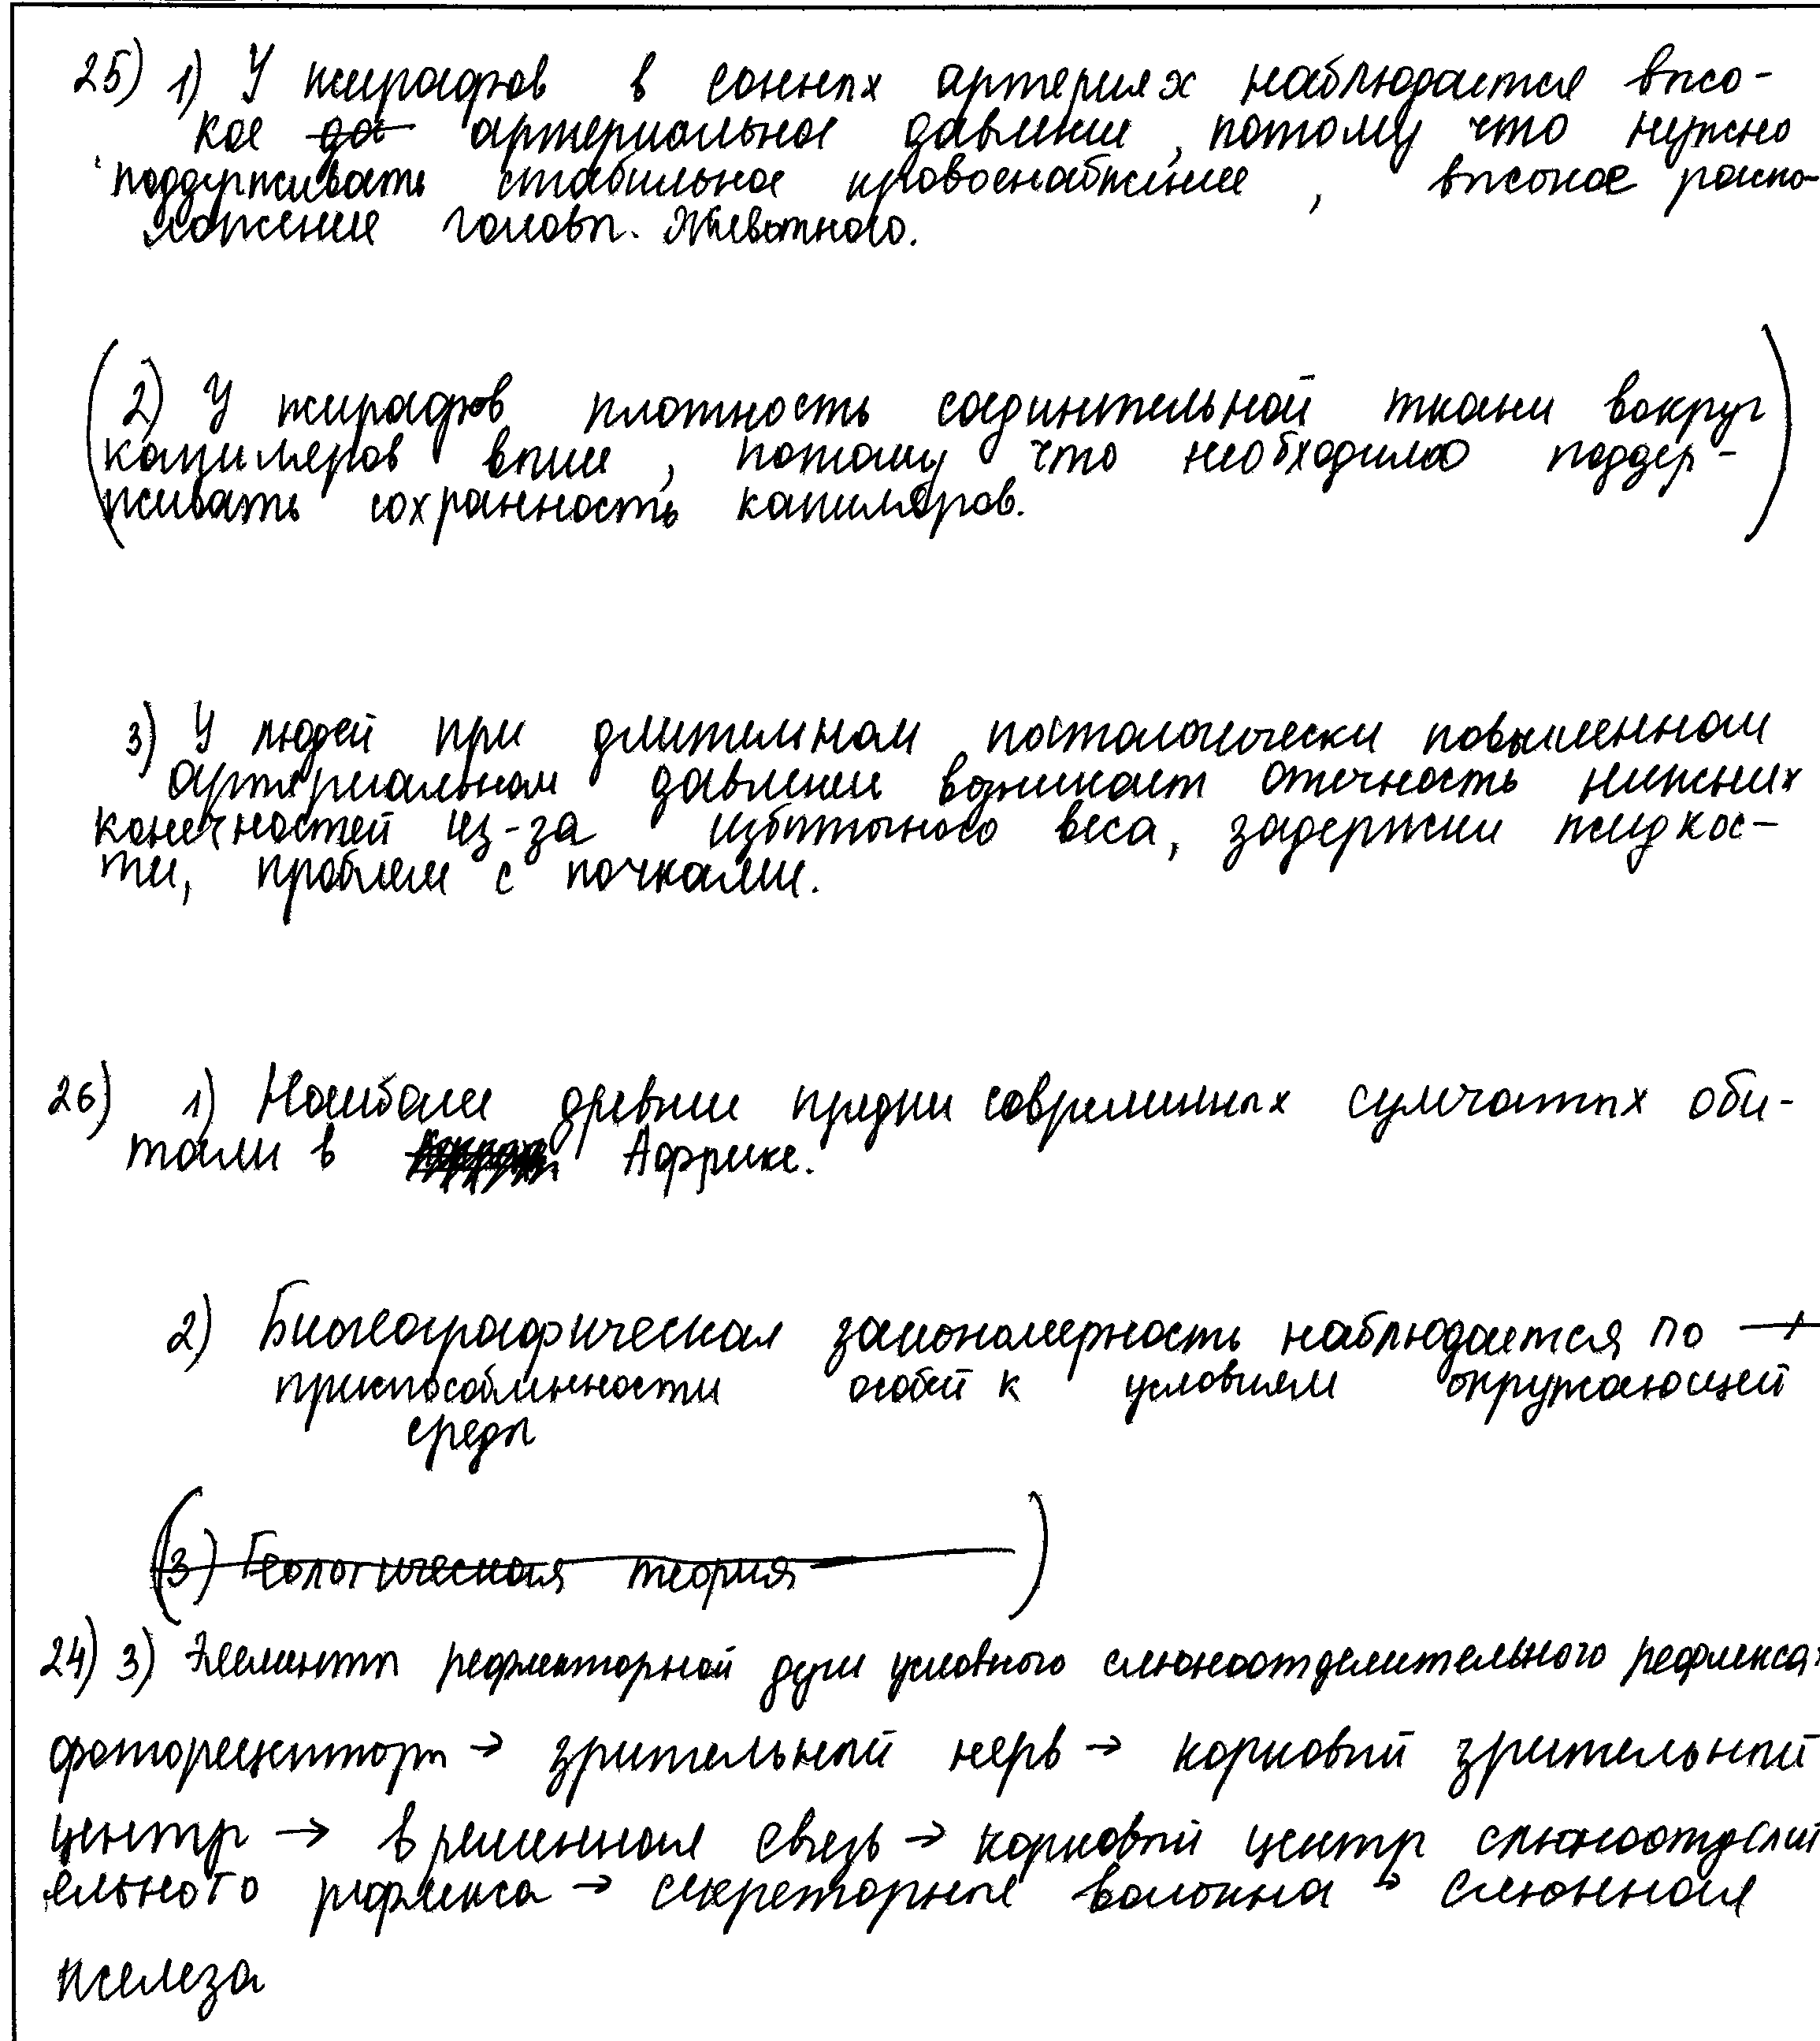 25) 1) У жирафов в сонных артериях наблюдается высо-
кое да артериальное давление, потому что нужно
поддерживать стабильное кровоснабжение, высокое распо-
ложение головы. Животного.
(2) У жирафов плотность соединительной ткани вокруг
капиляров выше, потому что необходимо поддер-
живать сохранность капиляров.)
3) У людей при длительном патологически повышенном
артериальном давлении возникает отечность нижних
конечностей из-за избыточного веса, задержки жидкос-
ти, проблем с почками.
26) 1) Наиболее древние предки современных сумчатых оби-
тали в Африке.
2) Биогеографическая закономерность наблюдается по
приспособленности особей к условиям окружающей
среды
(3) Геологическая теория)
24) 3) Элементы рефлекторной дуги условного слюноотделительного рефлекса:
фоторецепторы → зрительный нерв → корковый зрительный
центр → временная связь → корковый центр слюноотделит
ельного рефлекса → секреторные волокна → слюнная
железа